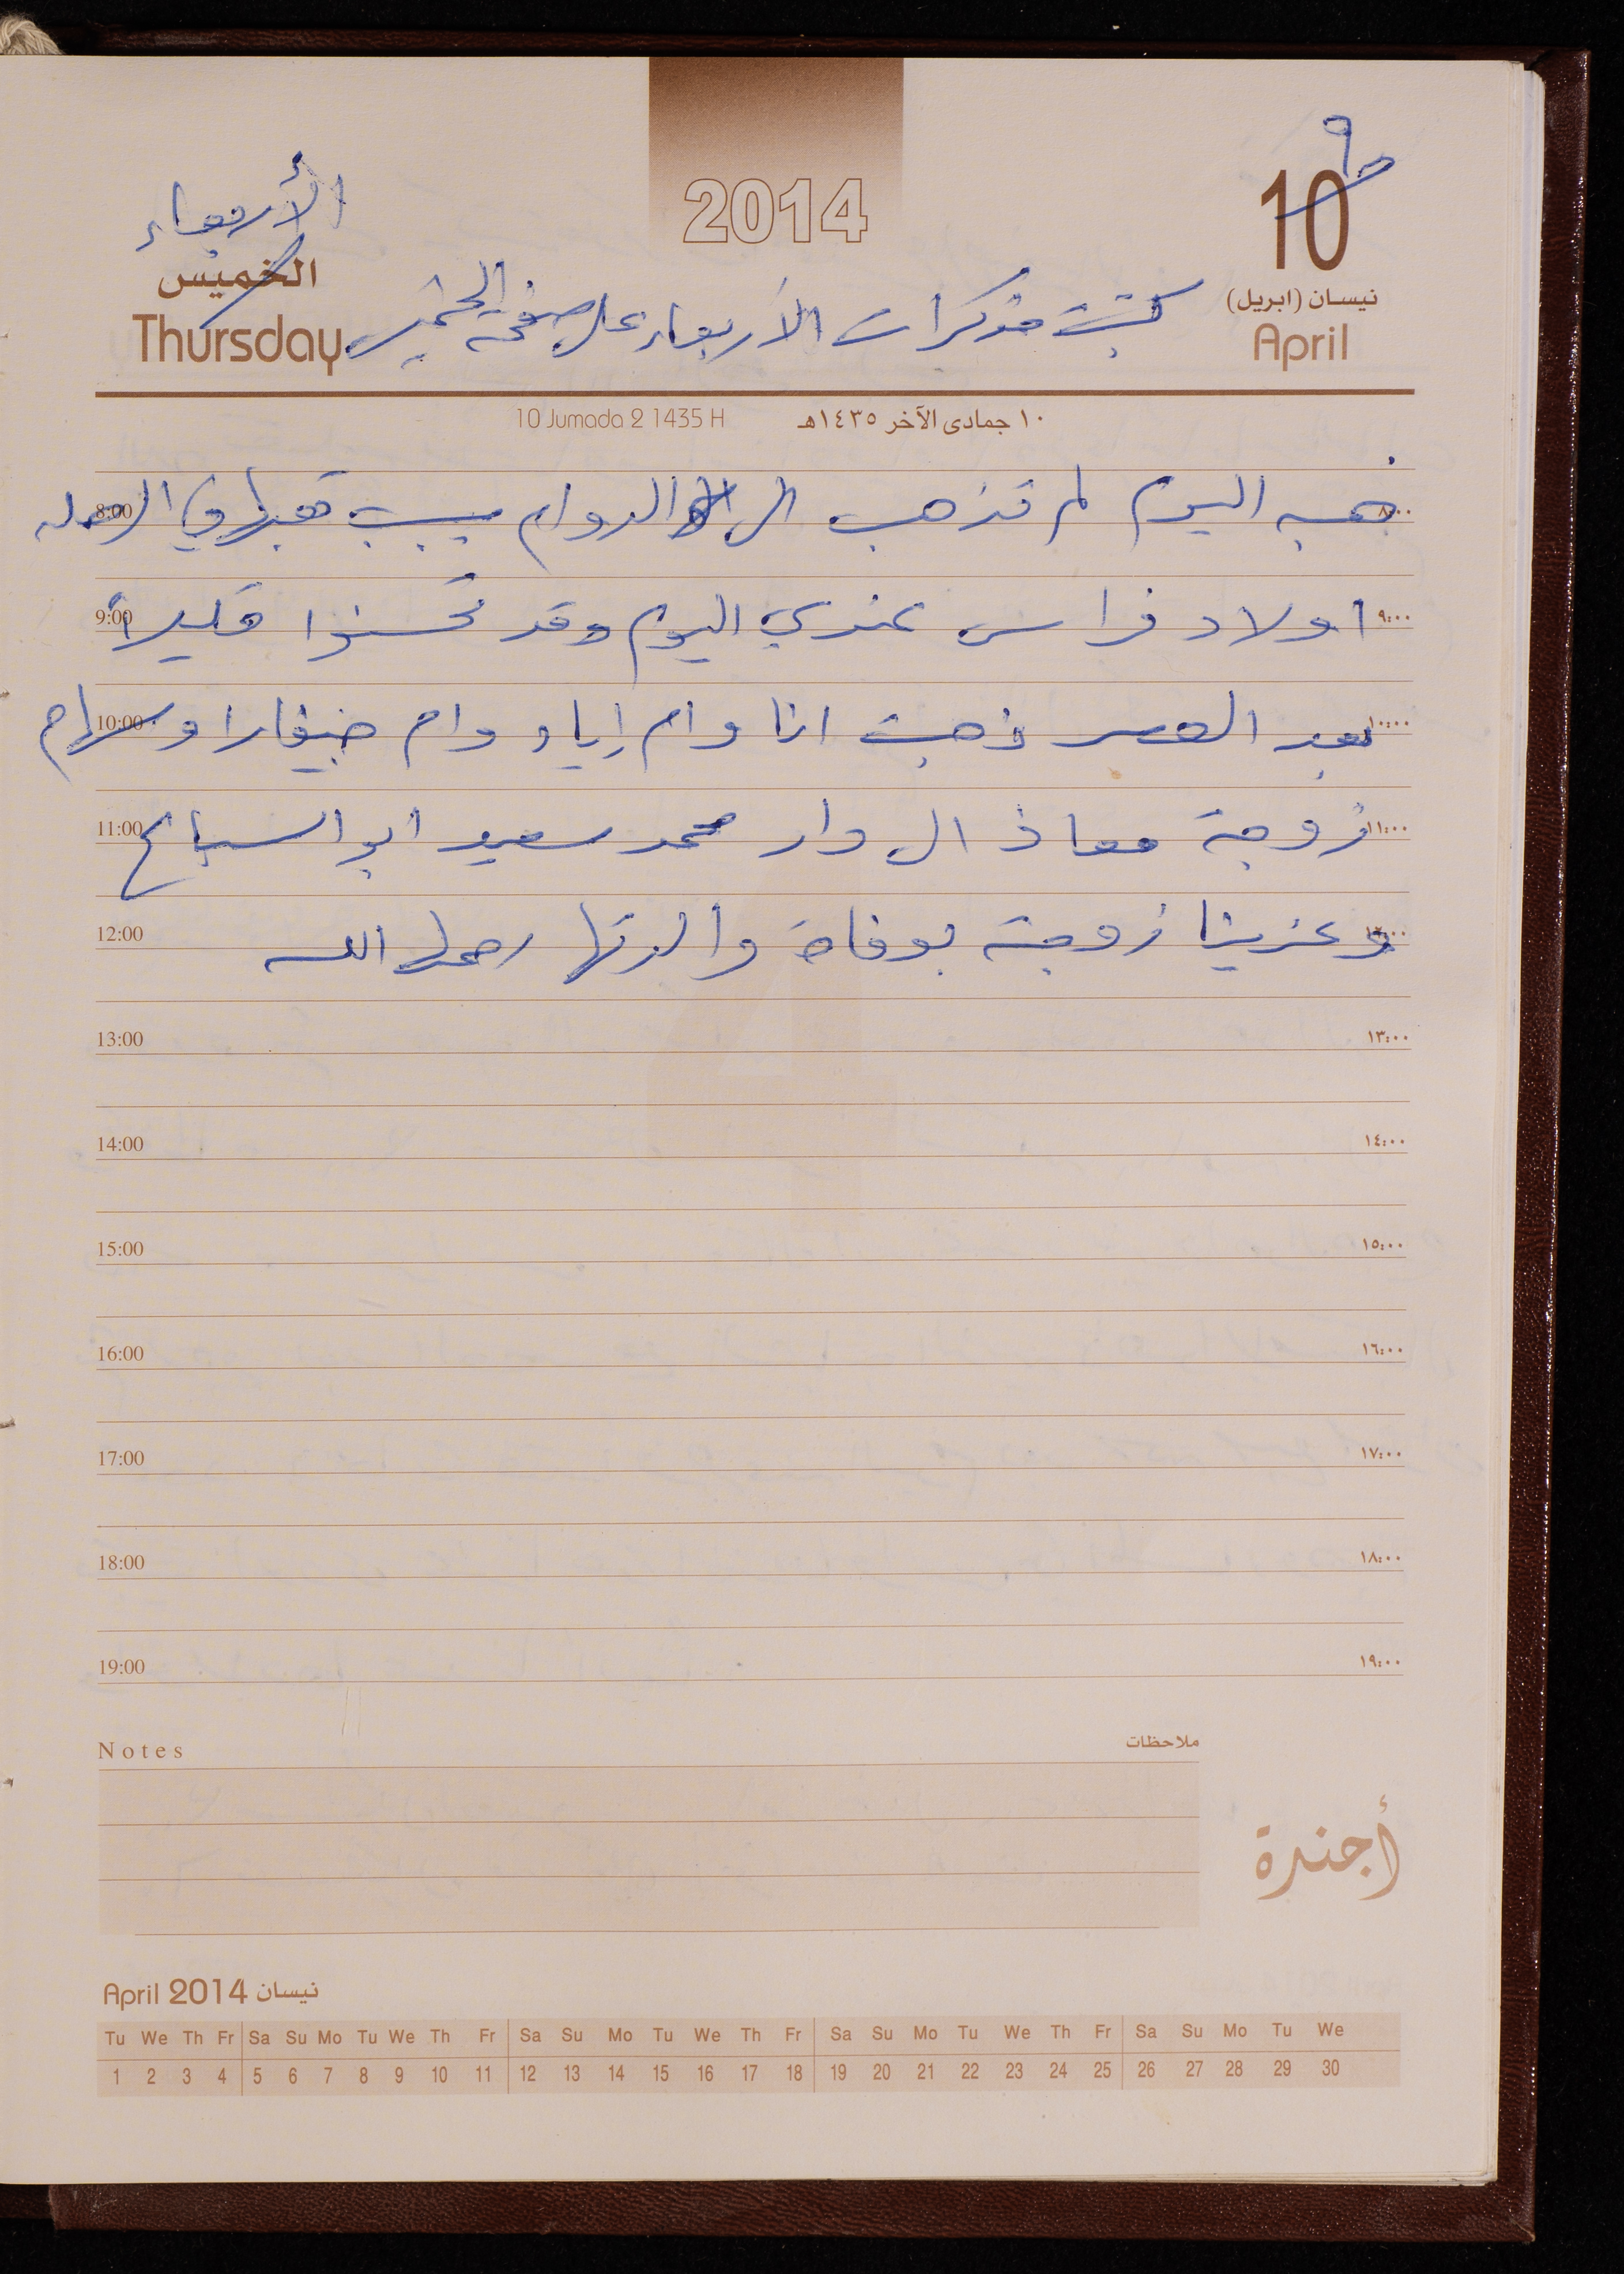 2014
٩
10
نيسان (ابريل)
April
الأربعاء
الخميس
Thursday
كتبت مذكرات الأربعاء على صفحة الخميس
10 Jumada 2 1435 H ١٠ جمادى الآخر ١٤٣٥هـ
8:00 هبه اليوم لم تذهب الى الدوام بسبب ٨:٠٠
9:00 اولاد فراس عندي اليوم وقد تحسنوا قليلاً ٩:٠٠
10:00 بعد العصر ذهبت انا وام إياد وام جيفارا وسهام ١٠:٠٠
11:00 زوجة معاذ الى دار محمد سعيد ابو السباع ١١:٠٠
12:00 وعزينا زوجته بوفاة والدتها رحمها الله ١٢:٠٠
13:00 ١٣:٠٠
14:00 ١٤:٠٠
15:00 ١٥:٠٠
16:00 ١٦:٠٠
17:00 ١٧:٠٠
18:00 ١٨:٠٠
19:00 ١٩:٠٠
Notes ملاحظات
أجندة
April 2014 نيسان
Tu We Th Fr Sa Su Mo Tu We Th Fr Sa Su Mo Tu We Th Fr Sa Su Mo Tu We Th Fr Sa Su Mo Tu We
1 2 3 4 5 6 7 8 9 10 11 12 13 14 15 16 17 18 19 20 21 22 23 24 25 26 27 28 29 30